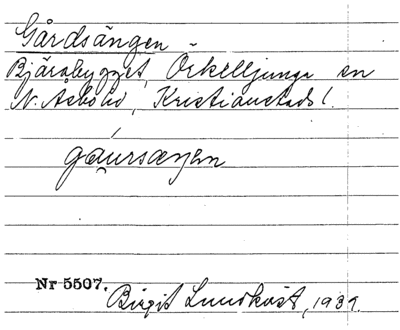 Gårdsängen
Bjäråbygget, Örkelljunga sn
N. Åsbo hd, Kristianstads l.
gɑursæŋen
Nr 5507.
Birgit Lundkvist, 1939.